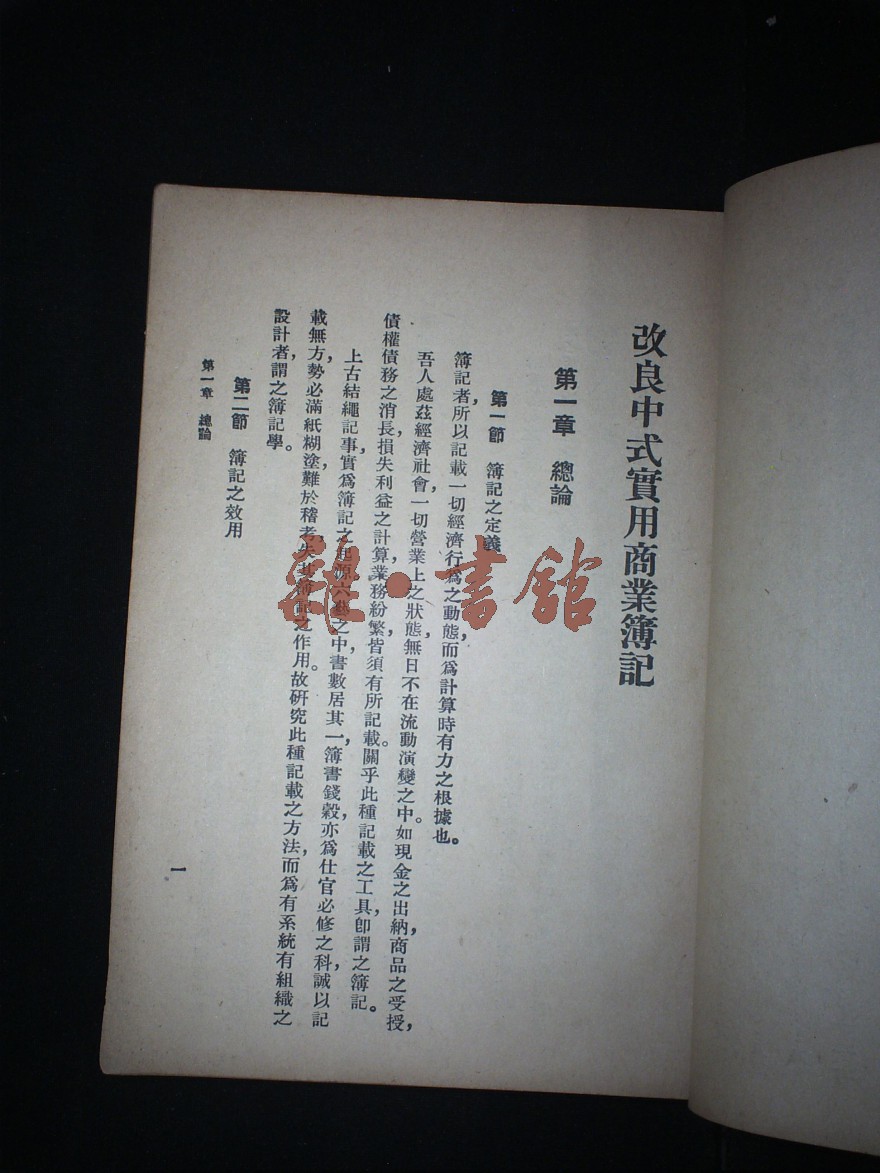 改良中式實用商業簿記
第一章 總論
第一節 簿記之定義
簿記者,所以記載一切經濟行爲之動態,而爲計算時有力之根據也。
吾人處茲經濟社會,一切營業上之狀態,無日不在流動演變之中。如現金之出納,商品之受授,
債權債務之消長,損失利益之計算,業務紛繁,皆須有所記載。關乎此種記載之工具,卽謂之簿記。
上古結繩記事,實爲簿記之起源,六藝之中,書數居其一,簿書錢穀,亦爲仕官必修之科,誠以記
載無方,勢必滿紙糊塗,難於稽考,失去簿記之作用。故研究此種記載之方法,而爲有系統有組織之
設計者,謂之簿記學。
第二節 簿記之效用
第一章 總論
一
雜·書館